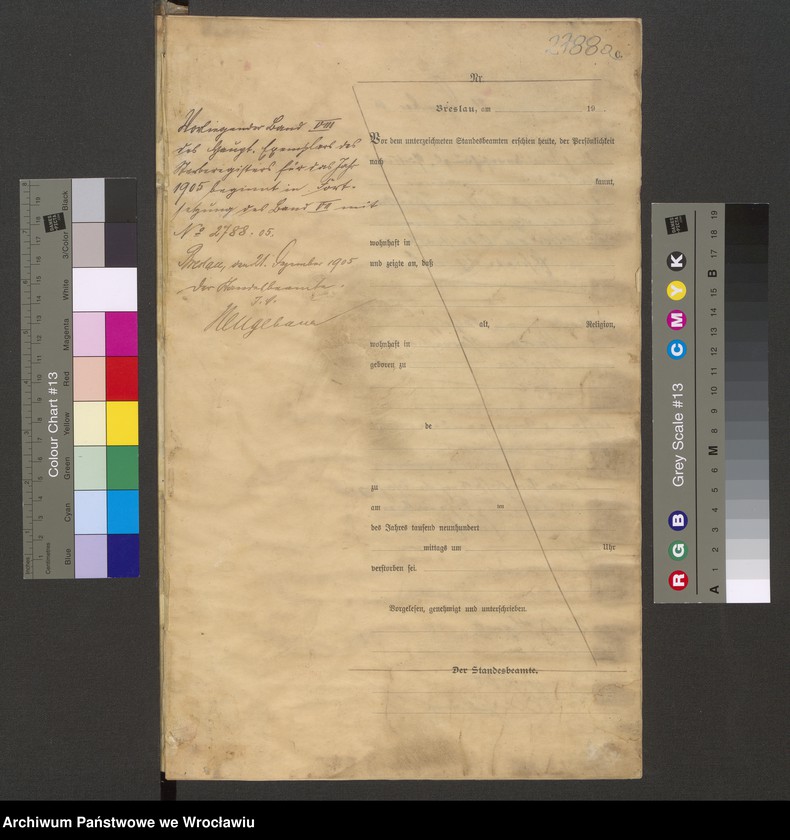 2788a
Nr.
Breslau, am 19
Vorliegender Band VIII
des Haupt-Exemplars des
Sterberegisters für das Jahr
1905 beginnt in Fort-
setzung des Band VII mit
No 2788.05.
Breslau, den 21. September 1905
Der Standesbeamte.
Vor dem unterzeichneten Standesbeamten erschien heute, der Persönlichkeit
nach
kannt,
wohnhaft in
und zeigte an, daß
alt, Religion,
wohnhaft in
geboren zu
de
zu
am
des Jahres tausend neunhundert
mittags um Uhr
verstorben sei.
Vorgelesen, genehmigt und unterschrieben.
Der Standesbeamte.
Colour Chart #13
Blue Cyan Green Yellow Red Magenta White 3/Color Black
Inches
Centimetres
Grey Scale #13
R G B C M Y K
A 1 2 3 4 5 6 M 8 9 10 11 12 13 14 15 B 17 18 19
Archiwum Państwowe we Wrocławiu